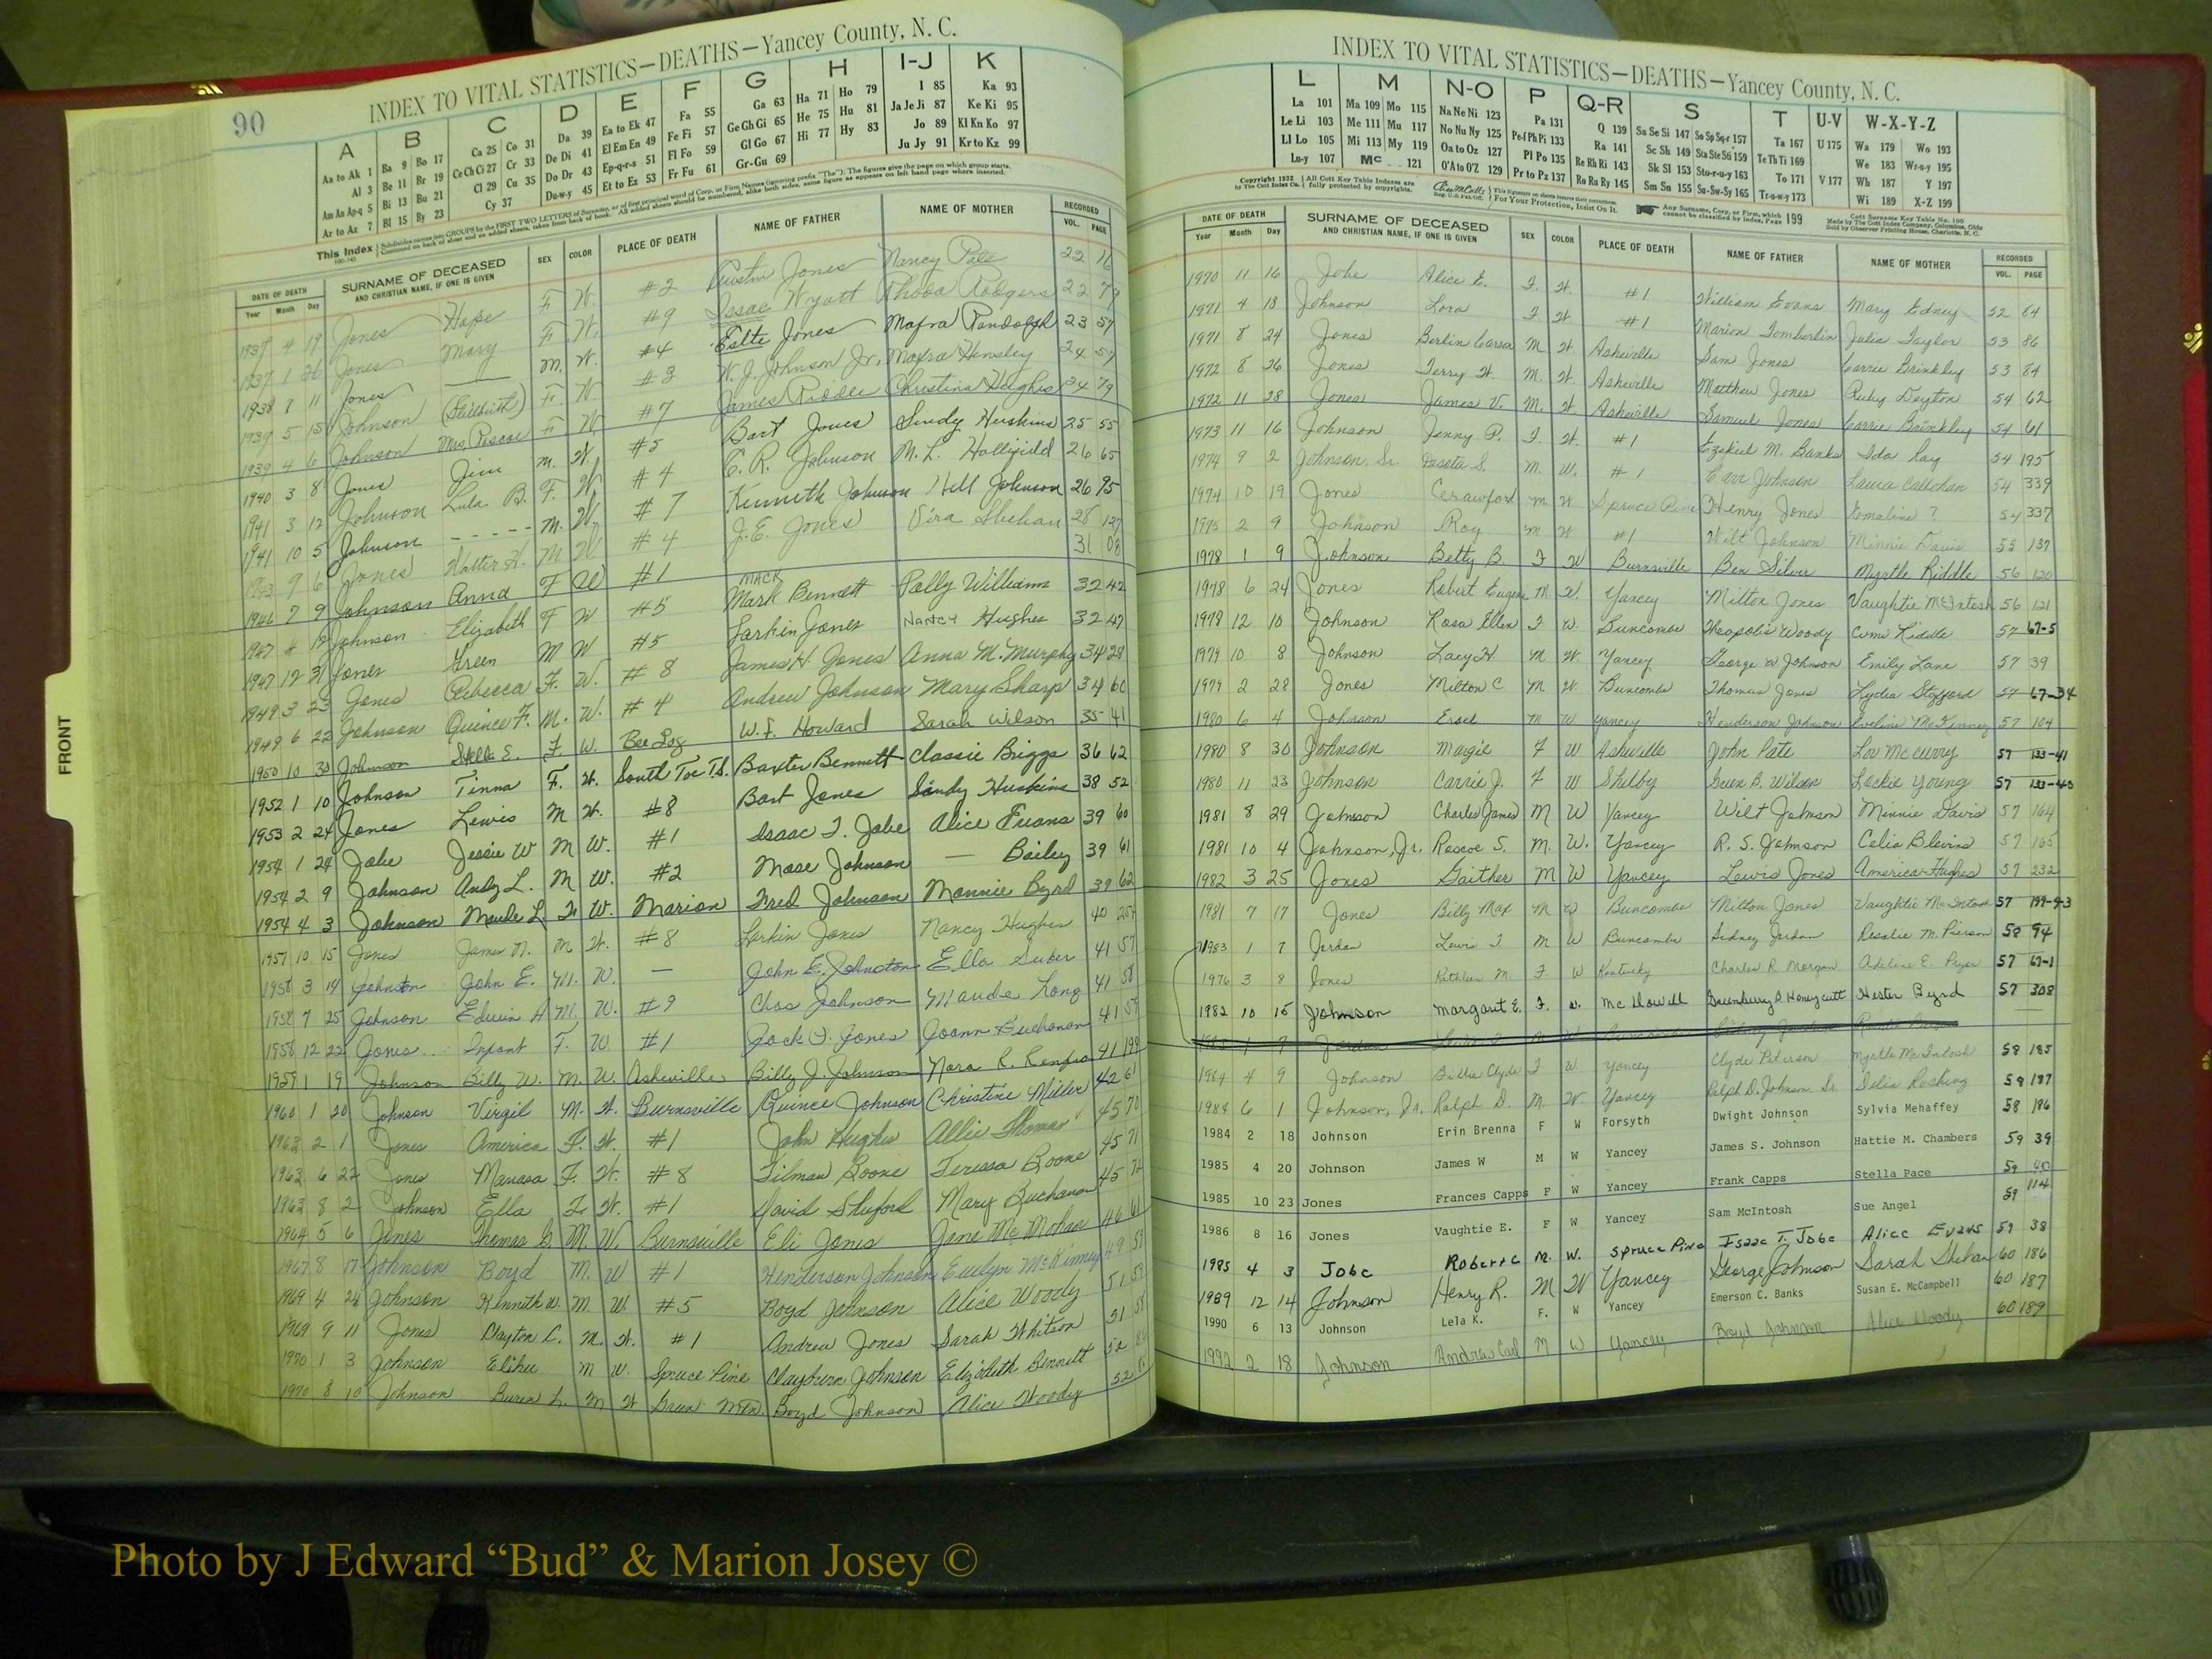 90
INDEX TO VITAL STATISTICS—DEATHS—Yancey County, N. C.
A B C D E F G H I-J K
Aa to Ak 1 Ba 9 Bo 17 Ca 25 Co 31 Da 39 Ea to Ek 47 Fa 55 Ga 63 Ha 71 Ho 79 I 85 Ka 93
Al 3 Be 11 Br 19 Ce Ch Ci 27 Cr 33 De Di 41 El Em En 49 Fe Fi 57 Ge Gh Gi 65 He 75 Hu 81 Ja Je Ji 87 Ke Ki 95
Am An Ap-q 5 Bi 13 Bu 21 Cl 29 Cu 35 Do Dr 43 Ep-q-r-s 51 Fl Fo 59 Gl Go 67 Hi 77 Hy 83 Jo 89 Kl Kn Ko 97
Ar to Az 7 Bl 15 By 23 Cy 37 Du-w-y 45 Et to Ez 53 Fr Fu 61 Gr-Gu 69 Ju Jy 91 Kr to Kz 99
This Index
DATE OF DEATH SURNAME OF DECEASED SEX COLOR PLACE OF DEATH NAME OF FATHER NAME OF MOTHER RECORDED
Year Month Day AND CHRISTIAN NAME, IF ONE IS GIVEN VOL. PAGE
1937 4 19 Jones Hope F W. #2 Jones Nancy Pate 22
1937 1 26 Jones Mary F. W. #9 Isaac Wyatt Rhoda Rodgers 22
1938 8 11 Jones M. W. #4 Eslte Jones Mafra Randolph 23 57
1939 5 15 Johnson (Stillbirth) F. W. #3 W. J. Johnson Jr. Mafra Hensley 24 57
1939 4 6 Johnson Mrs. Roscoe F W #7 James Riddle Christina Hughes 24 79
1940 3 8 Jones Jim M. W. #5 Bart Jones Sindy Huskins 25 55
1941 3 12 Johnson Lula B. F. W #4 E. R. Johnson M. L. Hollifield 26 65
1941 10 5 Johnson ---- M. W. #7 Kenneth Johnson Nell Johnson 26 95
1943 9 6 Jones Walter H. M W #4 J. E. Jones Vira Shehan 28 127
1946 7 9 Johnson Anna F W #1 31 08
1947 4 19 Johnson Elizabeth F W #5 MACK Mark Bennett Polly Williams 32 42
1947 12 31 Jones Green M W #5 Larkin Jones Nancy Hughes 32 47
1949 3 23 Jones Rebecca F. W. #8 James H. Jones Anna M. Murphy 34 28
1949 6 22 Johnson Quince F. M. W. #4 Andrew Johnson Mary Sharp 34 60
1950 10 30 Johnson Stella E. F. W. Bee Log W. F. Howard Sarah Wilson 35 41
1952 1 10 Johnson Tinna F. W. South Toe T.S. Baxter Bennett Classie Briggs 36 62
1953 2 24 Jones Lewis M W. #8 Bart Jones Sindy Huskins 38 52
1954 1 24 Jobe Jessie W M W. #1 Isaac T. Jobe Alice Evans 39 60
1954 2 9 Johnson Andy L. M W. #2 Mose Johnson — Bailey 39 61
1954 4 3 Johnson Maude L. F W. Marion Fred Johnson Mannie Byrd 39 62
1957 10 15 Jones James N. M W. #8 Larkin Jones Nancy Hughes 40
1958 3 19 Johnston John E. M. W. — John E. Johnston Ella Suber 41 57
1958 7 25 Johnson Edwin A M. W. #9 Chas Johnson Maude Long 41 58
1958 12 22 Jones Infant F. W #1 Jack J. Jones Joann Buchanan 41 59
1959 1 19 Johnson Billy W. M. W. Asheville Billy J. Johnson Nora R. Renfro 41 199
1960 1 20 Johnson Virgil M. W. Burnsville Quince Johnson Christine Miller 42 61
1963 2 1 Jones America F. W. #1 John Hughes Allie Thomas 45 70
1963 6 22 Jones Manasa F. W. #8 Tilman Boone Teressa Boone 45 71
1963 8 2 Johnson Ella F. W. #1 David Shuford Mary Buchanan 45 72
1964 5 6 Jones Thomas G. M. W. Burnsville Eli Jones Jane McMahan 46 61
1967 8 17 Johnson Boyd M. W #1 Henderson Johnson Evelyn McKinney 49 59
1969 4 28 Johnson Kenneth W. M. W. #5 Boyd Johnson Alice Woody 51
1969 9 11 Jones Clayton C. M. W. #1 Andrew Jones Sarah Whitson 51 58
1970 1 3 Johnson Elihu M W. Spruce Pine Clayburn Johnson Elizabeth Bennett 52
1970 8 10 Johnson Buren L. M W Green Mtn. Boyd Johnson Alice Woody 52
FRONT
INDEX TO VITAL STATISTICS—DEATHS—Yancey County, N. C.
L M N-O P Q-R S T U-V W-X-Y-Z
La 101 Ma 109 Mo 115 Na Ne Ni 123 Pa 131 Q 139 Sa Se Si 147 So Sp Sq-r 157 Ta 167 U 175 Wa 179 Wo 193
Le Li 103 Me 111 Mu 117 No Nu Ny 125 Pe-f Ph Pi 133 Ra 141 Sc Sh 149 Sta Ste Sti 159 Te Th Ti 169 We 183 Wr-u-y 195
Ll Lo 105 Mi 113 My 119 Oa to Oz 127 Pl Po 135 Re Rh Ri 143 Sk Sl 153 Sto-r-u-y 163 To 171 V 177 Wh 187 Y 197
Lu-y 107 Mc 121 O'A to O'Z 129 Pr to Pz 137 Ro Ru Ry 145 Sm Sn 155 Su-Sw-Sy 165 Tr-u-w-y 173 Wi 189 X-Z 199
DATE OF DEATH SURNAME OF DECEASED SEX COLOR PLACE OF DEATH NAME OF FATHER NAME OF MOTHER RECORDED
Year Month Day AND CHRISTIAN NAME, IF ONE IS GIVEN VOL. PAGE
1970 11 16 Jobe Alice E. F. W. #1 William Evans Mary Edney 52 84
1971 4 18 Johnson Lora F W #1 Marion Tomberlin Julia Taylor 53 86
1971 8 24 Jones Berlin Carson M W Asheville Sam Jones Carrie Brinkley 53 84
1972 8 26 Jones Terry W. M. W. Asheville Matthew Jones Ruby Deyton 54 62
1972 11 28 Jones James V. M. W Asheville Samuel Jones Carrie Brinkley 54 61
1973 11 16 Johnson Jenny P. F. W. #1 Ezekiel M. Banks Ida Ray 54 195
1974 9 2 Johnson, Sr. S. M. W. #1 Johnson Callahan 54 339
1974 10 19 Jones Crawford M W Spruce Pine Henry Jones Emaline ? 54 337
1975 2 9 Johnson Roy M W #1 Wilt Johnson Minnie Davis 55 137
1978 1 9 Johnson Betty B. F W Burnsville Ben Silver Myrtle Riddle 56 120
1978 6 24 Jones Robert Eugene M W. Yancey Milton Jones Vaughtie McIntosh 56 121
1978 12 10 Johnson Rosa Ellen F W. Buncombe Theopolis Woody Cumi Riddle 57 67-5
1979 10 8 Johnson Lacy H. M W. Yancey George W Johnson Emily Lane 57 39
1979 2 28 Jones Milton C M W. Buncombe Thomas Jones Lydia 57 67-34
1980 6 4 Johnson Ersel M W Yancey Henderson Johnson Eveline McKinney 57 104
1980 8 30 Johnson Magie F W Asheville John Pate Lou McCurry 57 133-41
1980 11 23 Johnson Carrie J. F W Shelby Green B. Wilson Lockie Young 57 133-40
1981 8 29 Johnson Charles James M W Yancey Wilt Johnson Minnie Davis 57 164
1981 10 4 Johnson, Jr. Roscoe S. M. W. Yancey R. S. Johnson Celia Blevins 57 165
1982 3 25 Jones Gaither M W Yancey Lewis Jones America Hughes 57 232
1981 7 17 Jones Billy Max M W Buncombe Milton Jones Vaughtie McIntosh 57 199-93
1983 1 7 Jordan Lewis J. M W Buncombe Sidney Jordan Rosalie M. Pierson 58 94
1976 3 8 Jones Kathleen M F W Kentucky Charles R. Morgan Adeline E. Pryor 57 67-1
1982 10 15 Johnson Margaret E. F. W. McDowell Greenberry B. Honeycutt Hester Byrd 57 308
1983 1 7 Jordan
1984 4 9 Johnson Billie Clyde F W Yancey Clyde Peterson Myrtle McIntosh 58 185
1984 6 1 Johnson, Jr. Ralph D. M. W. Yancey Ralph D. Johnson Sr. Delia 58 187
1984 2 18 Johnson Erin Brenna F W Forsyth Dwight Johnson Sylvia Mehaffey 58 196
1985 4 20 Johnson James W M W Yancey James S. Johnson Hattie M. Chambers 59 39
1985 10 23 Jones Frances Capps F W Yancey Frank Capps Stella Pace 59 40
1986 8 16 Jones Vaughtie E. F W Yancey Sam McIntosh Sue Angel 59 114
1985 4 3 Jobe Robert C M. W. Spruce Pine Isaac T. Jobe Alice Evans 59 38
1989 12 14 Johnson Henry R. M W Yancey George Johnson Sarah Shehan 60 186
1990 6 13 Johnson Lela K. F. W Yancey Emerson C. Banks Susan E. McCampbell 60 187
1992 2 18 Johnson Andrew Carl M W Yancey Boyd Johnson Alice Woody 60 189
Photo by J Edward “Bud” & Marion Josey ©